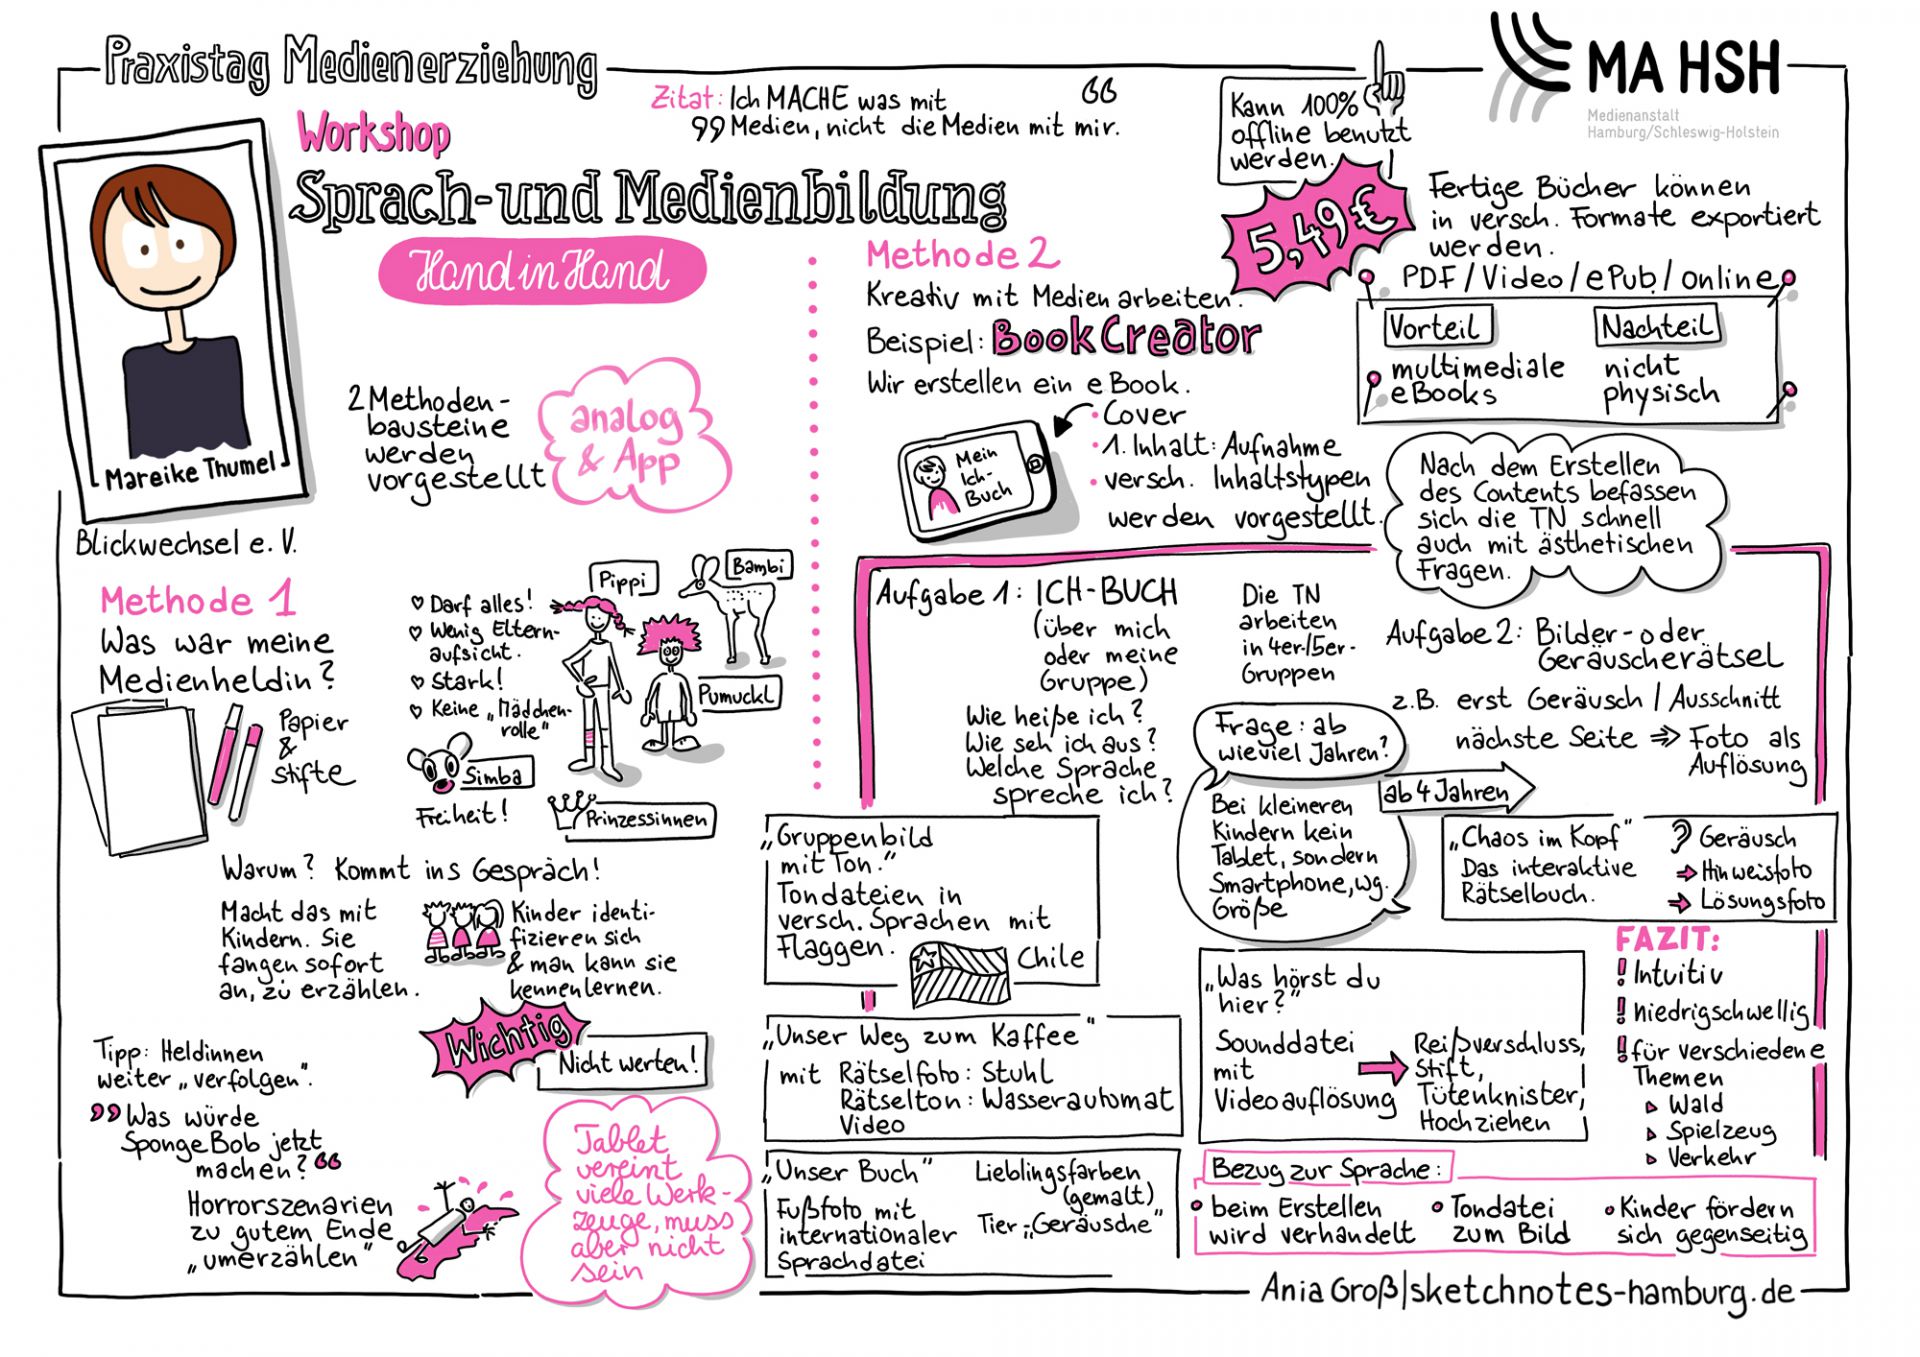 Praxistag Medienerziehung
MA HSH
Medienanstalt
Hamburg/Schleswig-Holstein
Workshop
Zitat: Ich MACHE was mit
Medien, nicht die Medien mit mir.
Sprach- und Medienbildung
Hand in Hand
Mareike Thumel
Blickwechsel e.V.
2 Methoden-
bausteine
werden
vorgestellt
analog
& App
Methode 1
Was war meine
Medienheldin?
Papier
&
Stifte
♡ Darf alles!
♡ Wenig Eltern-
aufsicht.
♡ Stark!
♡ Keine „Mädchen-
rolle"
Pippi
Bambi
Pumuckl
Simba
Freiheit!
Prinzessinnen
Warum? Kommt ins Gespräch!
Macht das mit
Kindern. Sie
fangen sofort
an, zu erzählen.
Kinder identi-
fizieren sich
& man kann sie
kennenlernen.
Wichtig
Nicht werten!
Tipp: Heldinnen
weiter „verfolgen".
„Was würde
SpongeBob jetzt
machen?"
Horrorszenarien
zu gutem Ende
„umerzählen"
Tablet
vereint
viele Werk-
zeuge, muss
aber nicht
sein
Methode 2
Kreativ mit Medien arbeiten.
Beispiel: BookCreator
Wir erstellen ein eBook.
Mein
Ich-
Buch
• Cover
• 1. Inhalt: Aufnahme
• versch. Inhaltstypen
werden vorgestellt.
Kann 100%
offline benutzt
werden.
5,49€
Fertige Bücher können
in versch. Formate exportiert
werden.
PDF/Video/ePub/online
Vorteil
multimediale
eBooks
Nachteil
nicht
physisch
Nach dem Erstellen
des Contents befassen
sich die TN schnell
auch mit ästhetischen
Fragen.
Aufgabe 1: ICH-BUCH
(über mich
oder meine
Gruppe)
Wie heiße ich?
Wie seh ich aus?
Welche Sprache
spreche ich?
Die TN
arbeiten
in 4er-/5er-
Gruppen
Aufgabe 2: Bilder- oder
Geräuscherätsel
z.B. erst Geräusch / Ausschnitt
nächste Seite ⇒ Foto als
Auflösung
Frage: ab
wieviel Jahren?
ab 4 Jahren
Bei kleineren
Kindern kein
Tablet, sondern
Smartphone, wg.
Größe
„Gruppenbild
mit Ton."
Tondateien in
versch. Sprachen mit
Flaggen.
Chile
„Chaos im Kopf"
Das interaktive
Rätselbuch.
Geräusch
→ Hinweisfoto
→ Lösungsfoto
„Unser Weg zum Kaffee"
mit Rätselfoto: Stuhl
Rätselton: Wasserautomat
Video
„Was hörst du
hier?"
Sounddatei
mit
Videoauflösung
→ Reißverschluss,
Stift,
Tütenknister,
Hochziehen
FAZIT:
! Intuitiv
! niedrigschwellig
! für verschiedene
Themen
▷ Wald
▷ Spielzeug
▷ Verkehr
„Unser Buch"
Fußfoto mit
internationaler
Sprachdatei
Lieblingsfarben
(gemalt)
Tier „Geräusche"
Bezug zur Sprache:
• beim Erstellen
wird verhandelt
• Tondatei
zum Bild
• Kinder fördern
sich gegenseitig
Ania Groß|sketchnotes-hamburg.de